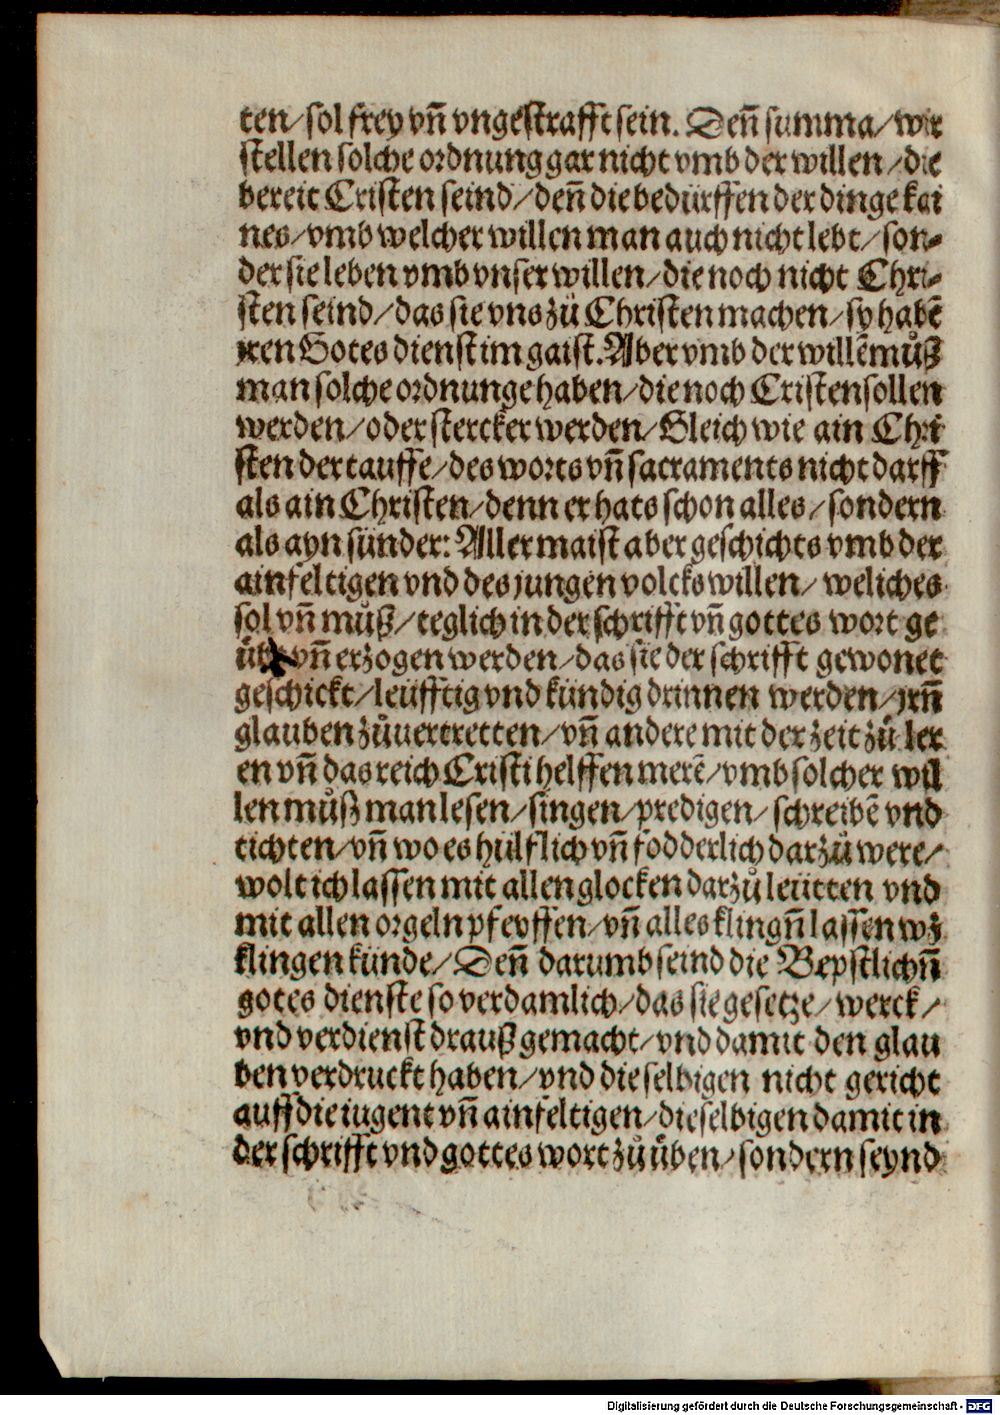 ten/ sol frey vñ vngestrafft sein. Deñ summa/ wir
stellen solche ordnung gar nicht vmb der willen/ die
bereit Cristen seind/ deñ die bedürffen der dinge kai
nes/ vmb welcher willen man auch nicht lebt/ son⸗
der sie leben vmb vnser willen/ die noch nicht Chri⸗
sten seind/ das sie vns zü Christen machen/ sy habē
jren Gotes dienst im gaist. Aber vmb der willē můß
man solche ordnunge haben/ die noch Cristen sollen
werden/ oder stercker werden/ Gleich wie ain Chri
sten der tauffe/ des worts vñ sacraments nicht darff
als ain Christen/ denn er hats schon alles/ sondern
als ayn sünder: Aller maist aber geschichts vmb der
ainfeltigen vnd des jungen volcks willen/ weliches
sol vñ můß/ teglich in der schrifft vñ gottes wort ge
übt vñ erzogen werden/ das sie der schrifft gewonet
geschickt/ leüfftig vnd kündig drinnen werden/ jrñ
glauben zůuertretten/ vñ andere mit der zeit zů ler
en vñ das reich Cristi helffen merē/ vmb solcher wil
len můß man lesen/ singen/ predigen/ schreibē vnd
tichten/ vñ wo es hülflich vñ fodderlich darzů were/
wolt ich lassen mit allen glocken darzů leütten vnd
mit allen orgeln pfeyffen/ vñ alles klingñ lassen wz
klingen künde/ Deñ darumb seind die Bepstlichñ
gotes dienste so verdamlich/ das sie gesetze/ werck/
vnd verdienst drauß gemacht/ vnd damit den glau
ben verdruckt haben/ vnd die selbigen nicht gericht
auff die iugent vñ ainfeltigen/ dieselbigen damit in
der schrifft vnd gottes wort zů üben/ sondern seynd
Digitalisierung gefördert durch die Deutsche Forschungsgemeinschaft - DFG